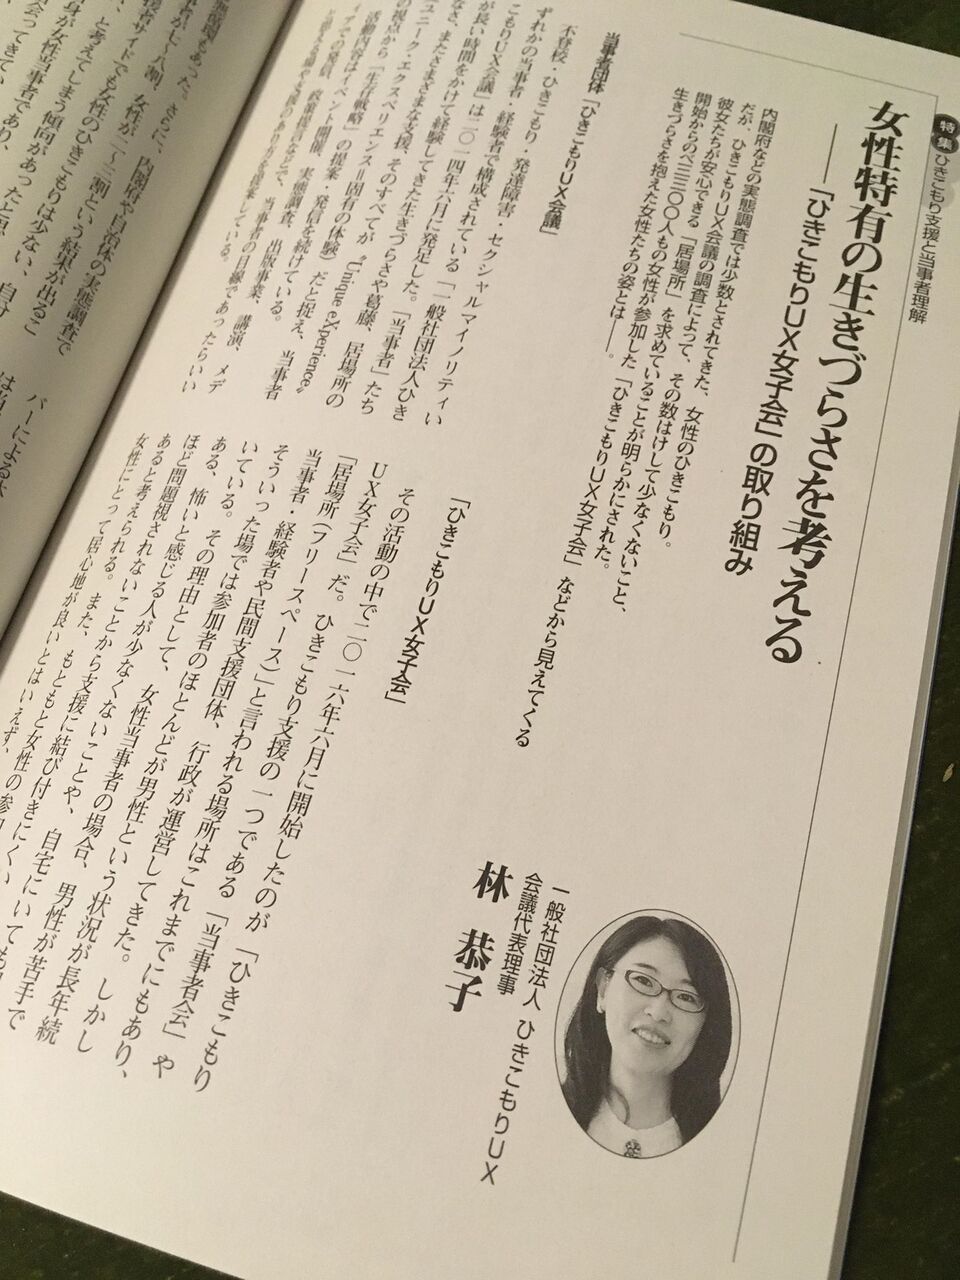 特集 ひきこもり支援と当事者理解
女性特有の生きづらさを考える
――「ひきこもりUX女子会」の取り組み
内閣府などの実態調査では少数とされてきた、女性のひきこもり。
だが、ひきこもりUX会議の調査によって、その数はけして少なくないこと、
彼女たちが安心できる「居場所」を求めていることが明らかにされた。
開始からのべ三三〇〇人もの女性が参加した「ひきこもりUX女子会」などから見えてくる
生きづらさを抱えた女性たちの姿とは――。
一般社団法人 ひきこもりUX
会議代表理事
林 恭子
当事者団体「ひきこもりUX会議」
不登校・ひきこもり・発達障害・セクシャルマイノリティい
ずれかの当事者・経験者で構成されている「一般社団法人ひき
こもりUX会議」は二〇一四年六月に発足した。「当事者」たち
が長い時間をかけて経験してきた生きづらさや葛藤、居場所の
なさ、またさまざまな支援、そのすべてが“Unique eXperience”
(ユニーク・エクスペリエンス＝固有の体験)だと捉え、当事者
の視点から「生存戦略」の提案・発信を続けている。
活動内容はイベント開催、実態調査、出版事業、講演、メデ
ィアでの発信、政策提言などで、当事者の目線であったらいい
「ひきこもりUX女子会」
その活動の中で二〇一六年六月に開始したのが「ひきこもり
UX女子会」だ。ひきこもり支援の一つである「当事者会」や
「居場所(フリースペース)」と言われる場所はこれまでにもあり、
当事者・経験者や民間支援団体、行政が運営してきた。しかし
そういった場では参加者のほとんどが男性という状況が長年続
いている。その理由として、女性当事者の場合、男性が苦手で
ある、怖いと感じる人が少なくないことや、自宅にいても
ほど問題視されないことから支援に結び付きにくい
あると考えられる。また、もともと女性の参加
女性にとって居心地が良いとはいえず、
内閣府や自治体の実態調査で
女性が二～三割という結果が出るこ
と考えてしまう傾向があったと思